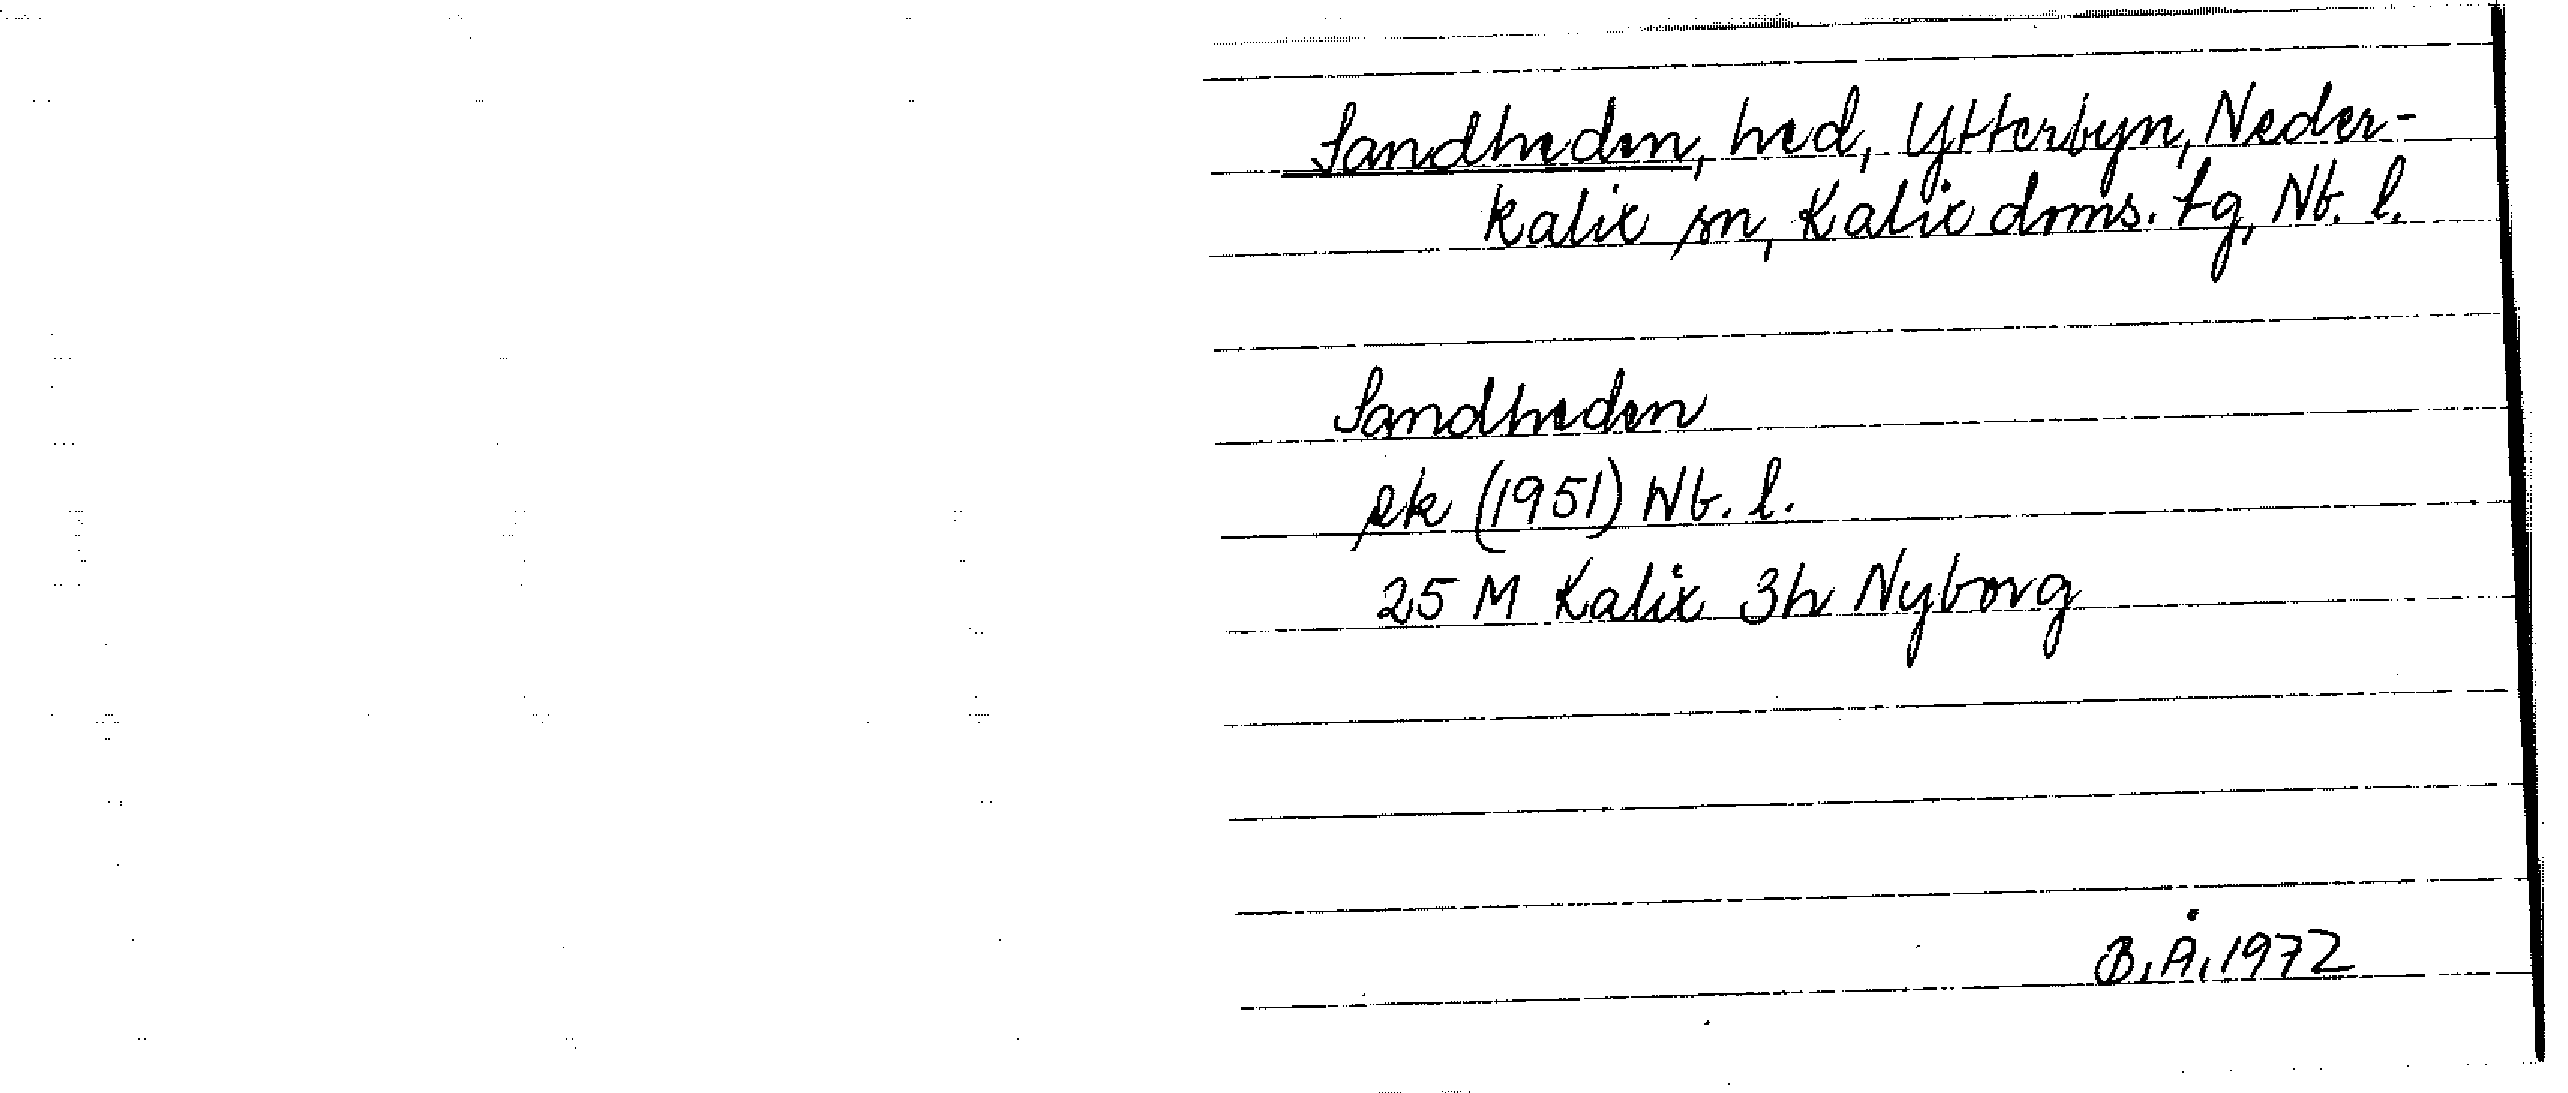 Sandheden, hed, Ytterbyn, Neder-
kalix sn, Kalix doms. tg, Nb. l.
Sandheden
ek (1951) Nb. l.
25 M Kalix 3h Nyborg
B.Å.1972